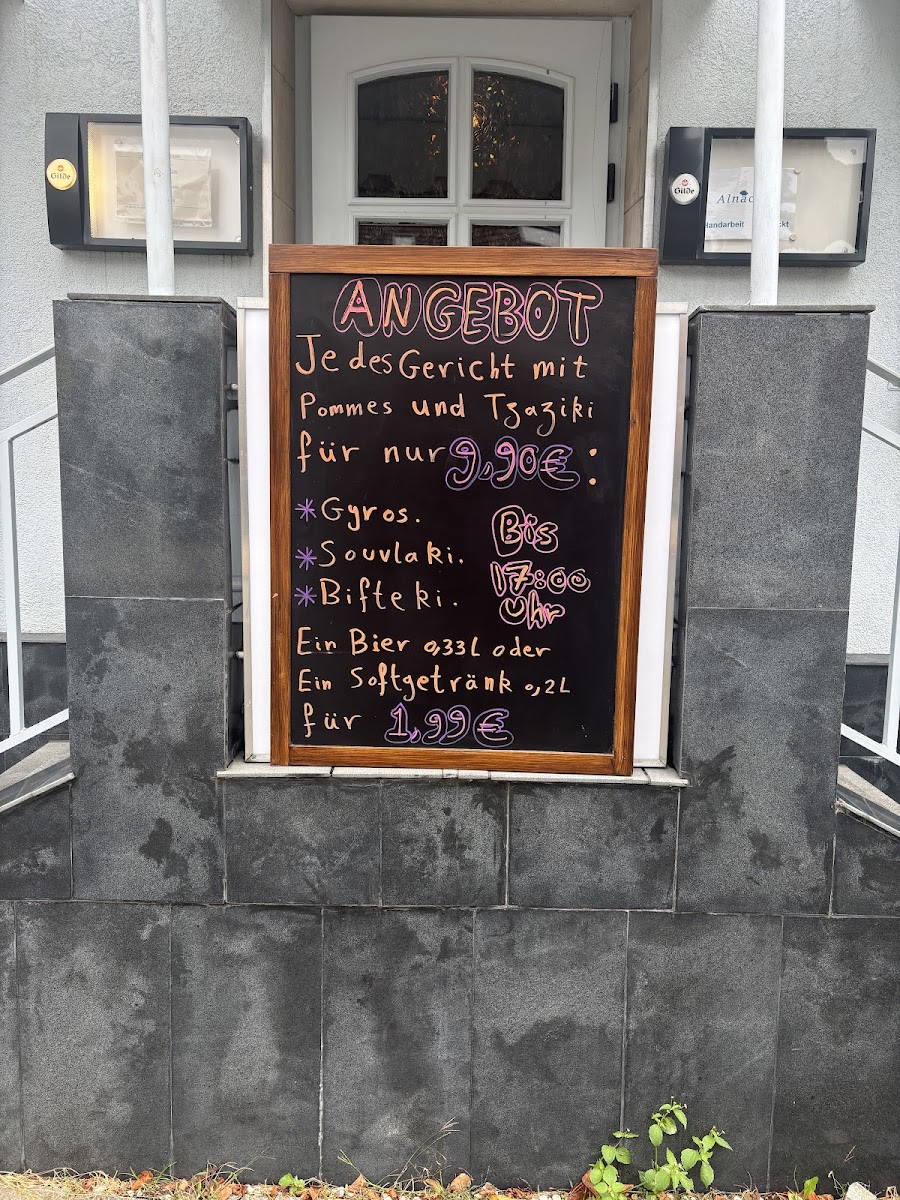 Gilde
Gilde
Handarbeit
ANGEBOT
Jedes Gericht mit
Pommes und Tzaziki
für nur 9,90€:
* Gyros.
* Souvlaki.
* Bifteki.
Bis
17:00
Uhr
Ein Bier 0,33L oder
Ein Softgetränk 0,2L
für 1,99€